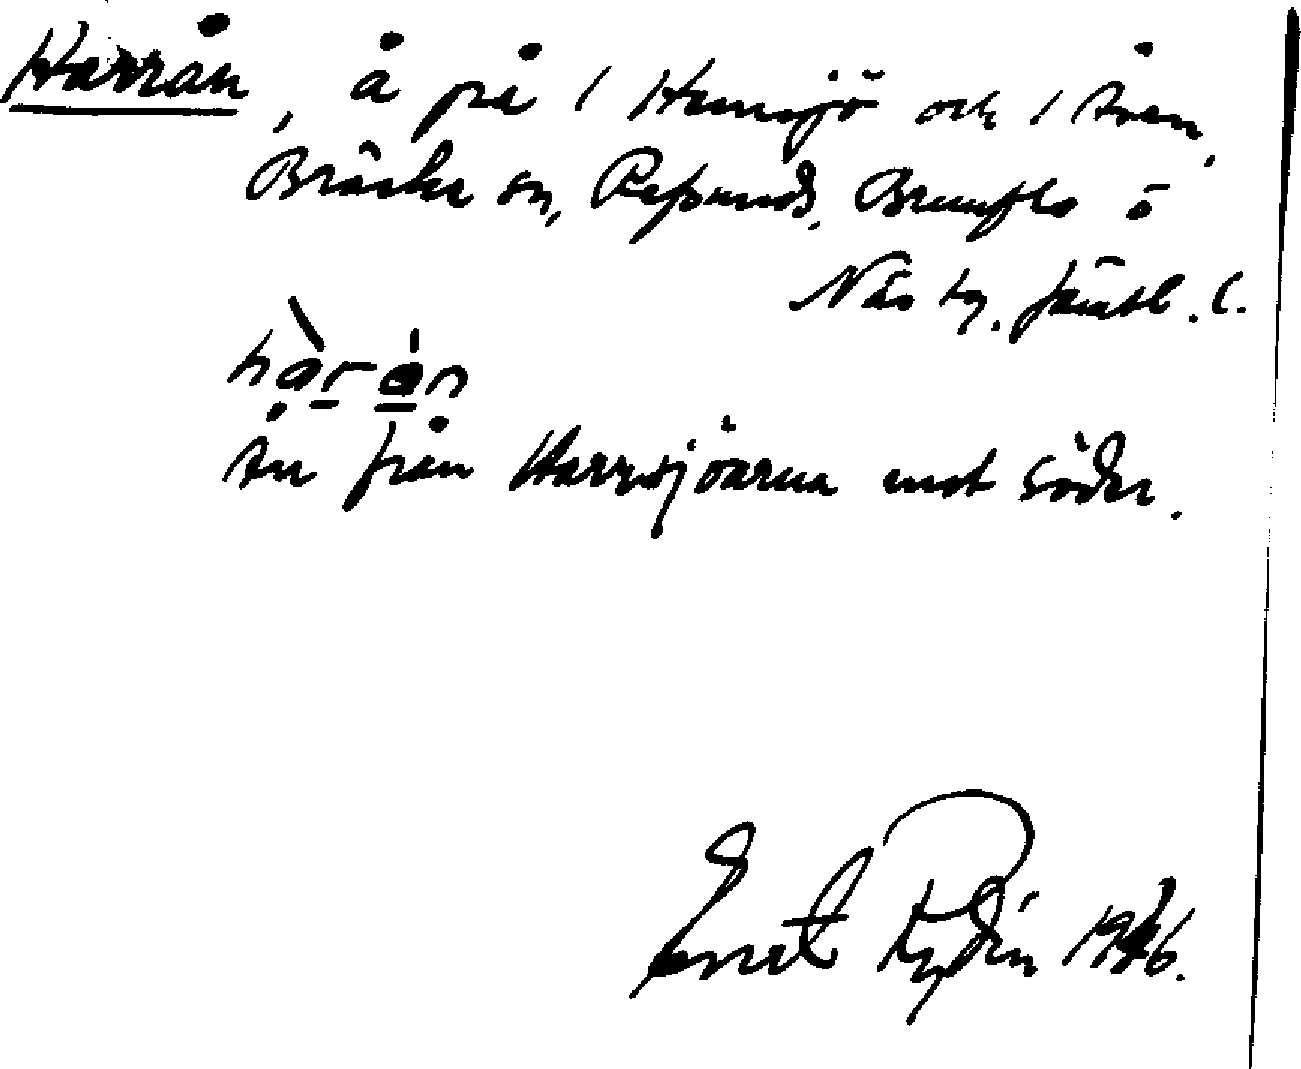 Harrån, å på 1 Hemsjö och 1 Åsen,
Bräcke sn, Refsunds, Brunflo o
Näs tg. Jämtl. l.
hàràn
Ån från Harrsjöarna mot söder.
Ernst Rydén 1946.